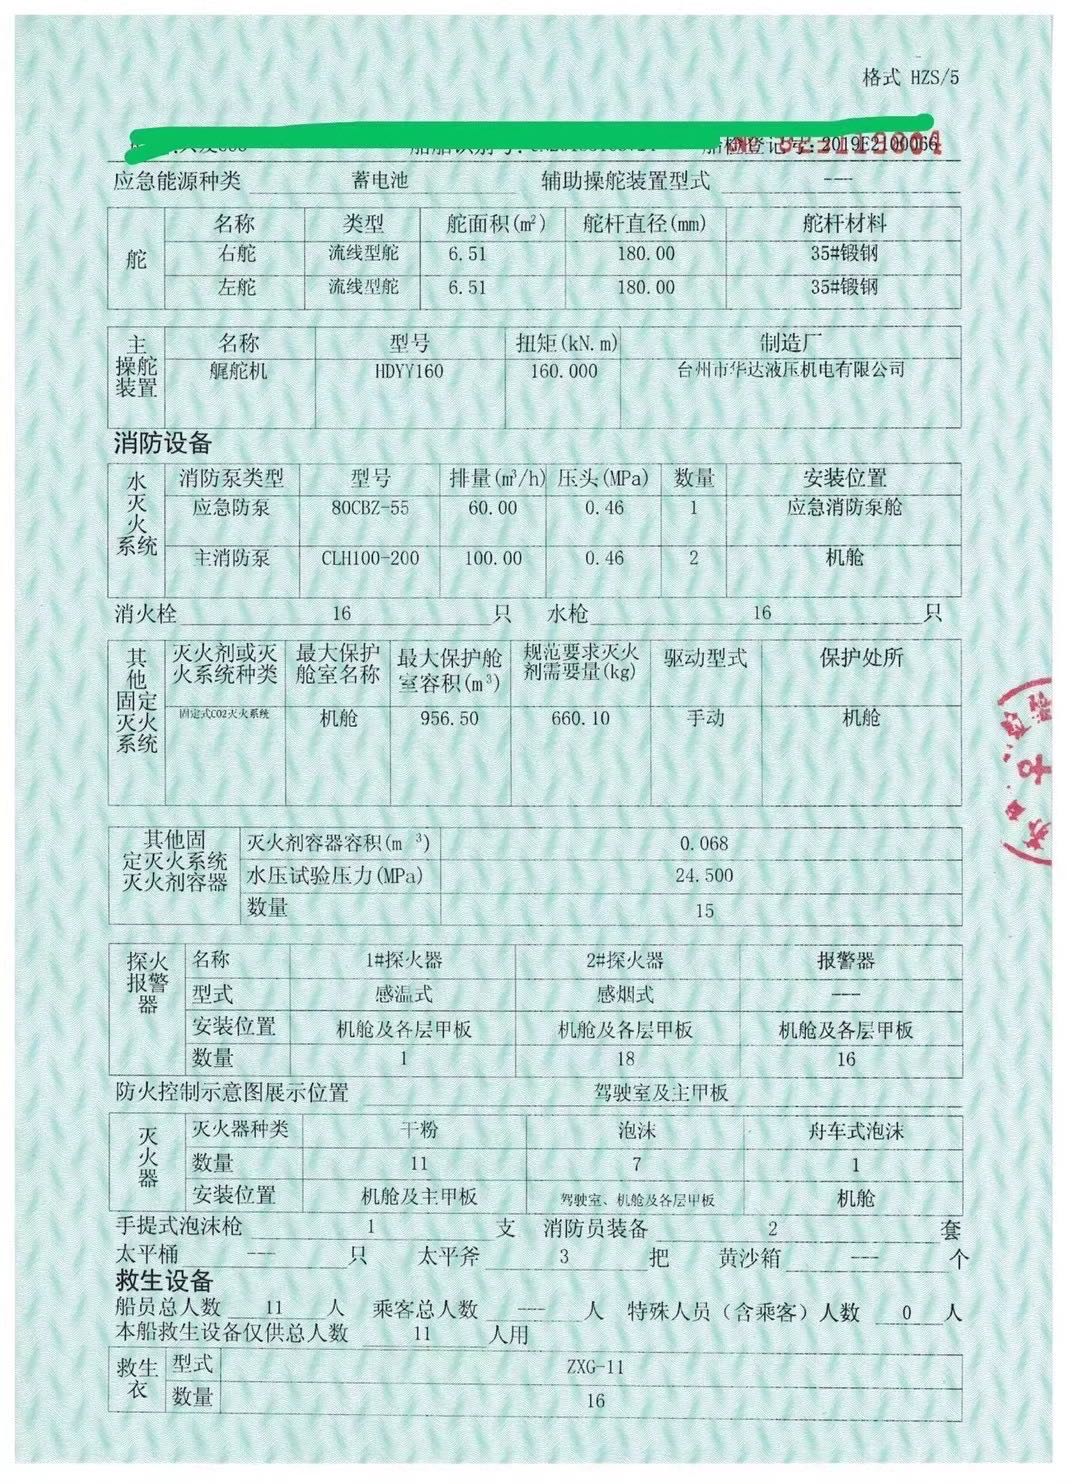 格式 HZS/5
船检登记号: 2019E2100066
应急能源种类 蓄电池 辅助操舵装置型式 ---
舵 名称 类型 舵面积(m²) 舵杆直径(mm) 舵杆材料
右舵 流线型舵 6.51 180.00 35#锻钢
左舵 流线型舵 6.51 180.00 35#锻钢
主操舵装置 名称 型号 扭矩(kN.m) 制造厂
艉舵机 HDYY160 160.000 台州市华达液压机电有限公司
消防设备
水灭火系统 消防泵类型 型号 排量(m³/h) 压头(MPa) 数量 安装位置
应急防泵 80CBZ-55 60.00 0.46 1 应急消防泵舱
主消防泵 CLH100-200 100.00 0.46 2 机舱
消火栓 16 只 水枪 16 只
其他固定灭火系统 灭火剂或灭火系统种类 最大保护舱室名称 最大保护舱室容积(m³) 规范要求灭火剂需要量(kg) 驱动型式 保护处所
固定式CO2灭火系统 机舱 956.50 660.10 手动 机舱
其他固定灭火系统灭火剂容器 灭火剂容器容积(m ³) 0.068
水压试验压力(MPa) 24.500
数量 15
探火报警器 名称 1#探火器 2#探火器 报警器
型式 感温式 感烟式 ---
安装位置 机舱及各层甲板 机舱及各层甲板 机舱及各层甲板
数量 1 18 16
防火控制示意图展示位置 驾驶室及主甲板
灭火器 灭火器种类 干粉 泡沫 舟车式泡沫
数量 11 7 1
安装位置 机舱及主甲板 驾驶室、机舱及各层甲板 机舱
手提式泡沫枪 1 支 消防员装备 2 套
太平桶 --- 只 太平斧 3 把 黄沙箱 --- 个
救生设备
船员总人数 11 人 乘客总人数 --- 人 特殊人员（含乘客）人数 0 人
本船救生设备仅供总人数 11 人用
救生衣 型式 ZXG-11
数量 16